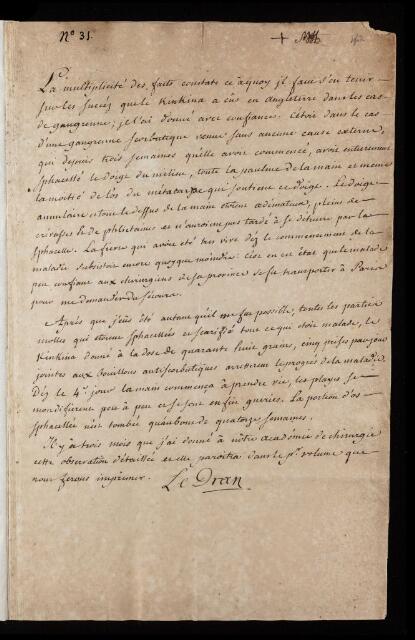 N° 31.
La multiplicité des faits constate ce à quoy il faut s'en tenir
sur les succéz que le Kinkina a eûs en Angleterre dans les cas
de gangrenne; je l'ai donné avec confiance. C'étoit dans le cas
d'une gangrenne scorbutique venue sans aucune cause externe,
qui depuis trois semaines qu'elle avoit commencé, avoit entierement
sphacellé le doigt du milieu, toute la paulme de la main et meme
la moitié de l'os du métacarpe qui soutient ce doigt. Le doigt
annulaire et tout le dessus de la main étoient œdémateux, pleins de
crevasses et de phlictaines et n'auroient pas tardé à se détruire par la
sphacelle. La fievre qui avoit été tres vive déz le commencement de la
maladie subsistoit encore quoyque moindre: c'est en cet état que le malade
peu confiant aux chirurgiens de sa province se fit transporter à Paris
pour me demander du secours.
Après que j'eûs ôté autant qu'il me fut possible, toutes les parties
molles qui étoient sphacellées et scarifié tout ce qui étoit malade, le
Kinkina donné à la dose de quarante huit grains, cinq prises par jour
jointes aux bouillons antiscorbutiques arretterent le progrès de la maladie.
Déz le 4e. jour la main commença à prendre vie, les playes se
mondifierent peu à peu et se sont enfin gueries. La portion d'os
sphacellée n'est tombée qu'au bout de quatorze semaines.
Il y a trois mois que j'ai donné à nôtre academie de chirurgie
cette observation détaillée et elle paroitra dans le pr. volume que
nous ferons imprimer.
Le Dran